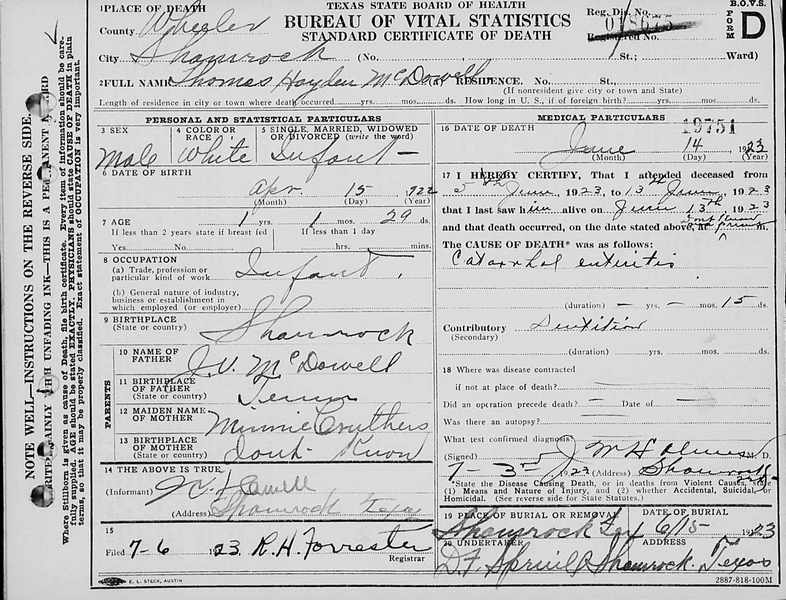 1 PLACE OF DEATH
TEXAS STATE BOARD OF HEALTH
BUREAU OF VITAL STATISTICS
STANDARD CERTIFICATE OF DEATH
Reg. Dis. No.
Registered No.
B.O.V.S.
FORM D
County Wheeler
City Shamrock (No. St., Ward)
2 FULL NAME Thomas Hayden McDowell (a) RESIDENCE. No. St.,
(If nonresident give city or town and State)
Length of residence in city or town where death occurred yrs. mos. ds. How long in U. S., if of foreign birth? yrs. mos. ds.
PERSONAL AND STATISTICAL PARTICULARS
3 SEX
Male
4 COLOR OR RACE
White
5 SINGLE, MARRIED, WIDOWED OR DIVORCED (write the word)
Infant
6 DATE OF BIRTH
Apr. 15 1922
(Month) (Day) (Year)
7 AGE
1 yrs. 1 mos. 29 ds.
If less than 2 years state if breast fed
If less than 1 day
Yes No hrs. mins.
8 OCCUPATION
(a) Trade, profession or
particular kind of work Infant.
(b) General nature of industry,
business or establishment in
which employed (or employer)
9 BIRTHPLACE
(State or country) Shamrock
PARENTS
10 NAME OF
FATHER J. V. McDowell
11 BIRTHPLACE
OF FATHER
(State or country) Tenn
12 MAIDEN NAME
OF MOTHER Minnie Couthers
13 BIRTHPLACE
OF MOTHER
(State or country) dont Know
14 THE ABOVE IS TRUE
(Informant)
(Address) Shamrock Texas
15
Filed 7-6 1923 R. H. Forrester
Registrar
E. L. STECK, AUSTIN
MEDICAL PARTICULARS
19751
16 DATE OF DEATH
June 14 1923
(Month) (Day) (Year)
17 I HEREBY CERTIFY, That I attended deceased from
5th June, 1923, to 13th June, 1923
that I last saw him alive on June 13th 1923
and that death occurred, on the date stated above, at
The CAUSE OF DEATH* was as follows:
Catarrhal enteritis
(duration) — yrs. — mos. 15 ds.
Contributory Dentition
(Secondary)
(duration) yrs. mos. ds.
18 Where was disease contracted
if not at place of death?
Did an operation precede death? — Date of —
Was there an autopsy?
What test confirmed diagnosis?
(Signed) J M Holmes M. D.
7-3 1923 (Address) Shamrock
*State the Disease Causing Death, or in deaths from Violent Causes, state
(1) Means and Nature of Injury, and (2) whether Accidental, Suicidal, or
Homicidal. (See reverse side for State Statutes.)
19 PLACE OF BURIAL OR REMOVAL
Shamrock Tex
DATE OF BURIAL
6/15 1923
20 UNDERTAKER
ADDRESS
Shamrock Texas
2887-818-100M
NOTE WELL—INSTRUCTIONS ON THE REVERSE SIDE.
WRITE PLAINLY WITH UNFADING INK—THIS IS A PERMANENT RECORD
Where Stillborn is given as cause of Death, file birth certificate. Every item of information should be care-
fully supplied. AGE should be stated EXACTLY. PHYSICIANS should state CAUSE OF DEATH in plain
terms, so that it may be properly classified. Exact statement of OCCUPATION is very important.